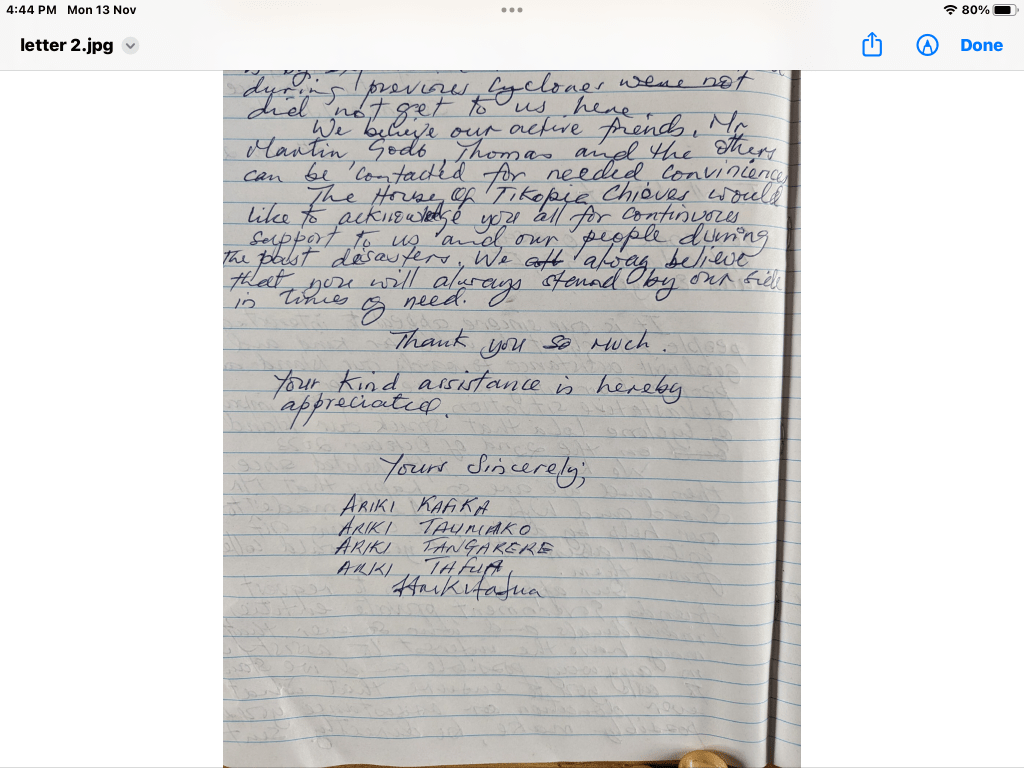 4:44 PM Mon 13 Nov
80%
letter 2.jpg
Done
during previous cyclones were not
did not get to us here
We believe our active friends, Mr
Martin, Godo, Thomas and the others
can be contacted for needed conviniences
The House of Tikopia Chieves would
like to acknowledge you all for continuous
support to us and our people during
the past desasters. We alway believe
that you will always stand by our side
in times of need.
Thank you so much.
Your kind assistance is hereby
appreciated.
Yours Sincerely;
ARIKI KAFIKA
ARIKI TAUMAKO
ARIKI TANGARERE
ARIKI TAFUA
Arikitafua